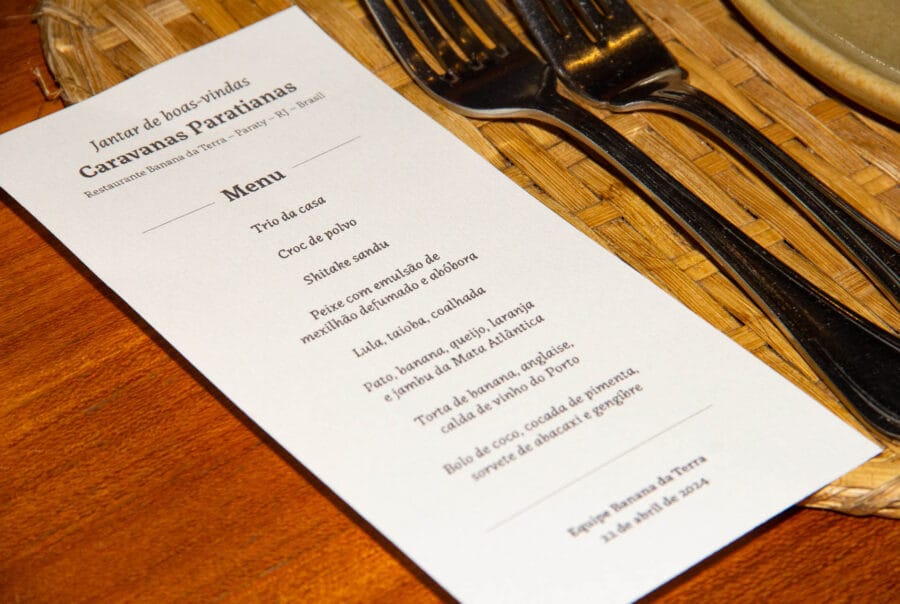 Jantar de boas-vindas
Caravanas Paratianas
Restaurante Banana da Terra – Paraty – RJ – Brasil
Menu
Trio da casa
Croc de polvo
Shitake sandu
Peixe com emulsão de
mexilhão defumado e abóbora
Lula, taioba, coalhada
Pato, banana, queijo, laranja
e jambu da Mata Atlântica
Torta de banana, anglaise,
calda de vinho do Porto
Bolo de coco, cocada de pimenta,
sorvete de abacaxi e gengibre
Equipe Banana da Terra
22 de abril de 2024